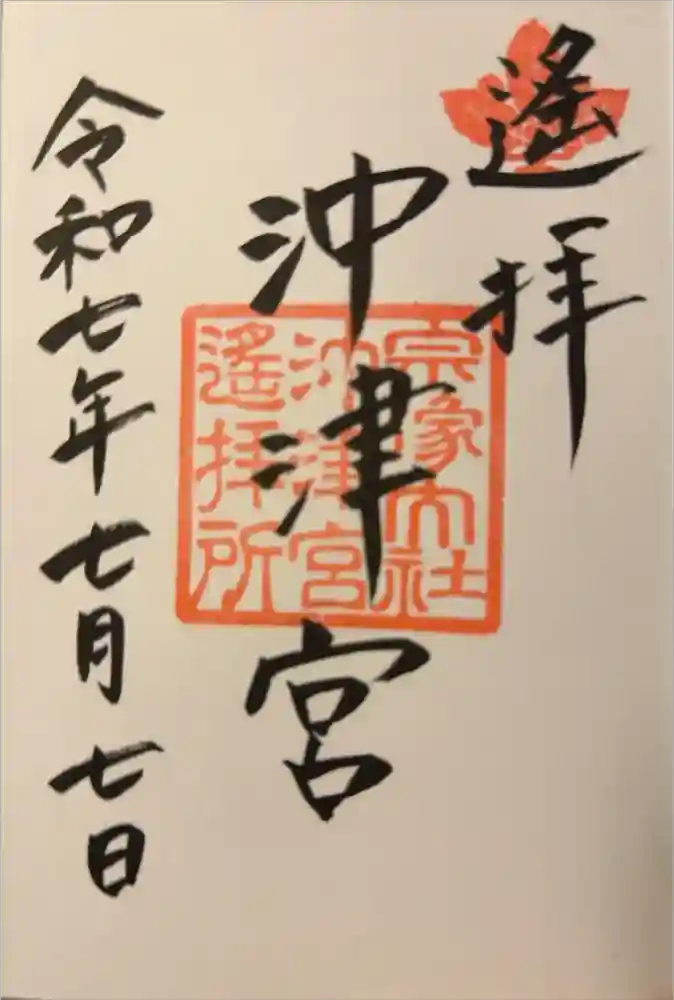 遙拝
沖津宮
令和七年七月七日
宗象大社
沖津宮
遙拝所